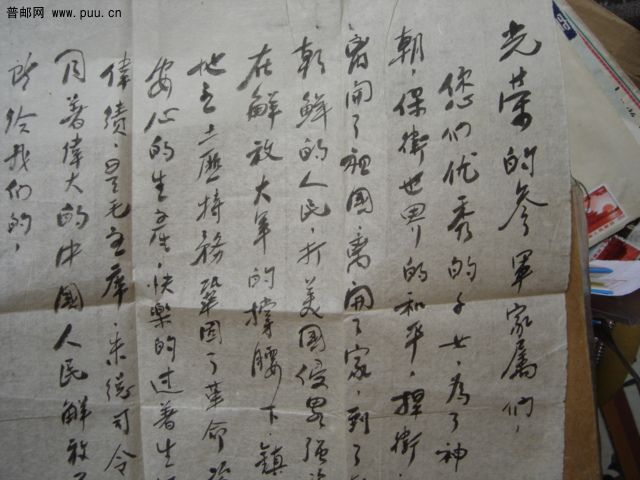 普邮网 www.puu.cn
光荣的參軍家属們，
您们优秀的子女，为了神
朝，保衛世界的和平，捍衛
离開了祖國，离開了家，到了
朝鮮的人民，打美國侵畧强
在解放大军的撑腰下，鎮
地主土匪特務鞏固了革命
安心的生產，快樂的过着生
偉績，是毛主席，朱總司令
同着偉大的中國人民解放
所给我们的，